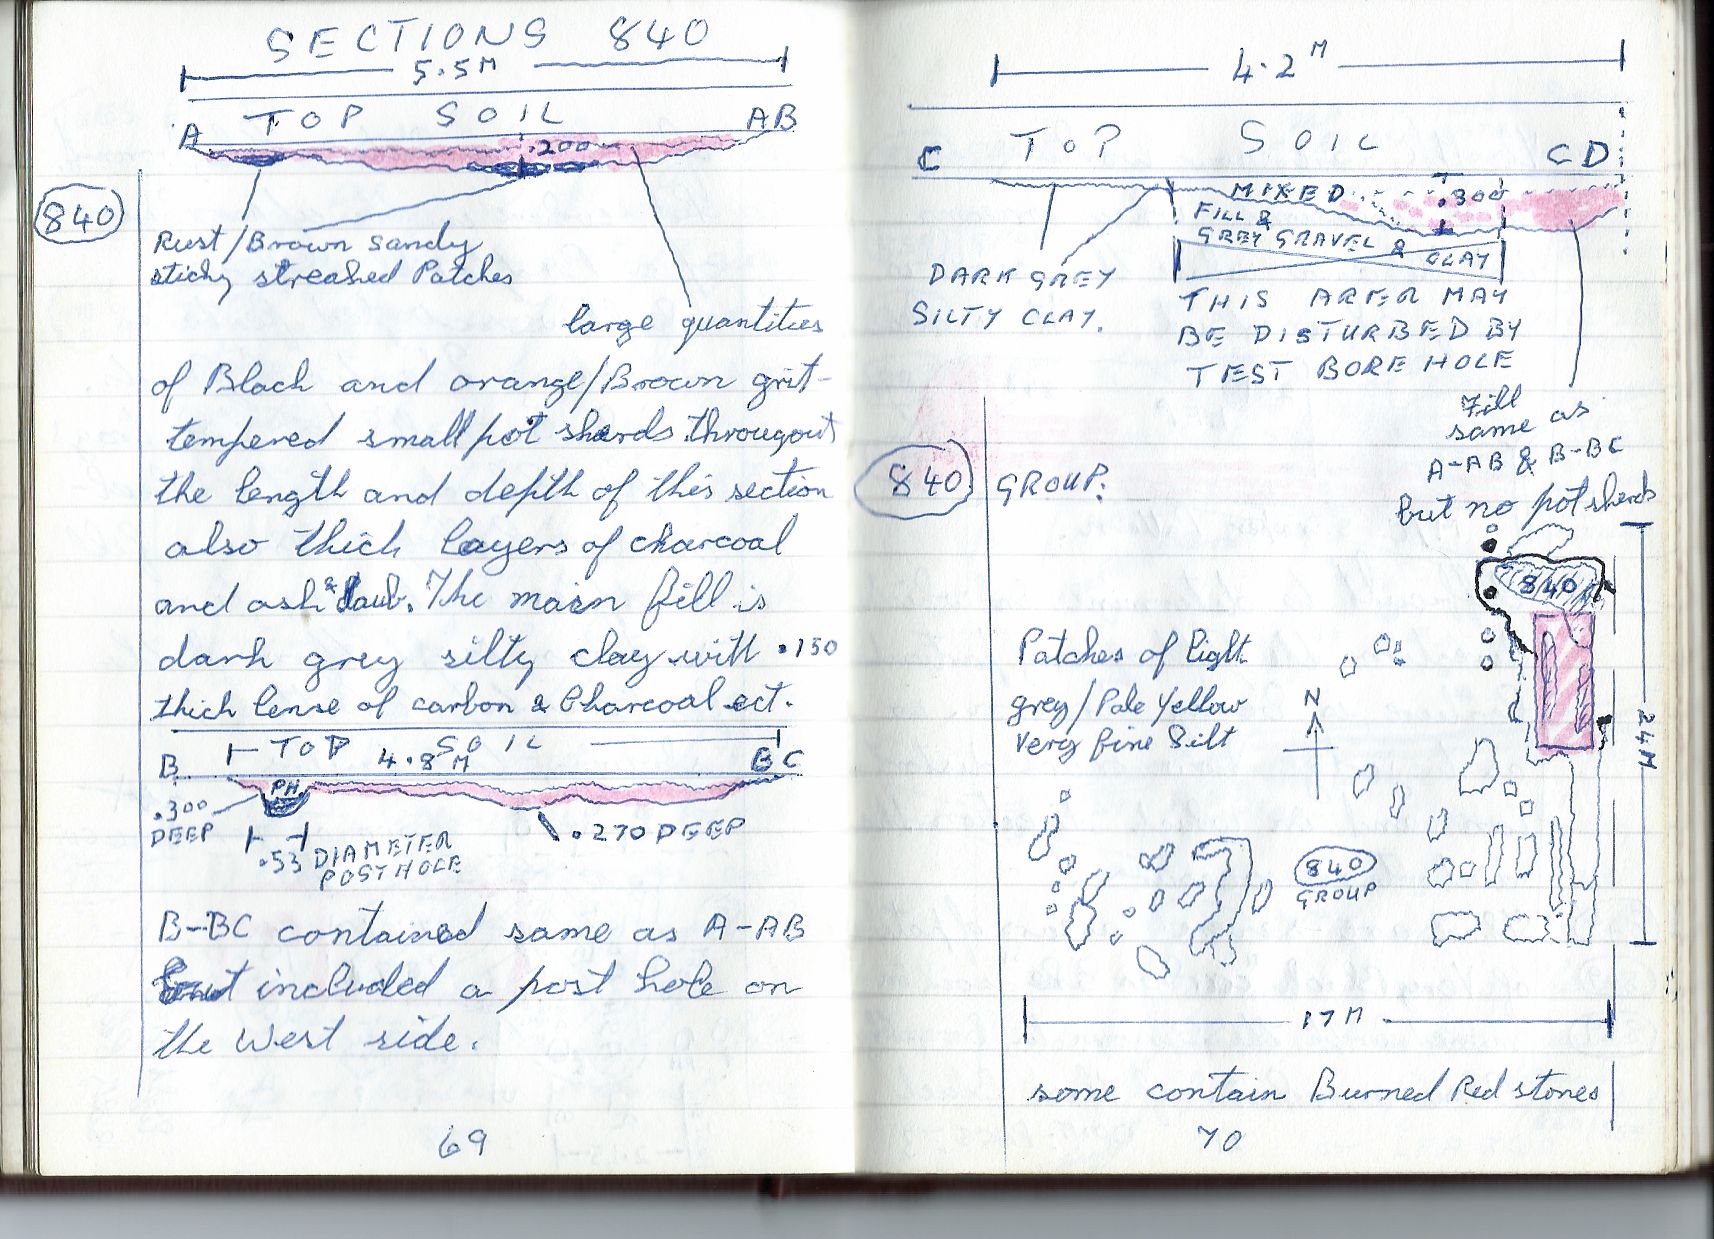 SECTIONS 840
5.5M
TOP SOIL
A AB
.200
840
Rust/Brown sandy
sticky streaked Patches
large quantities
of Black and orange/Brown grit-
tempered small pot sherds througout
the length and depth of this section
also thick layers of charcoal
and ash & daub. The main fill is
dark grey silty clay with .150
thick lense of carbon & Charcoal ect.
TOP SOIL
4.8M
B BC
PH
.300
DEEP
.53 DIAMETER
POSTHOLE
.270 DEEP
B-BC contained same as A-AB
but included a post hole on
the West side.
69
4.2M
TOP SOIL
C CD
MIXED
.300
FILL &
GREY GRAVEL &
CLAY
DARK GREY
SILTY CLAY.
THIS AREA MAY
BE DISTURBED BY
TEST BORE HOLE
Fill
same as
A-AB & B-BC
but no pot sherds
840
GROUP:
840
Patches of light
grey/Pale Yellow
Very fine Silt
N
24M
840
GROUP
17M
some contain Burned Red stones
70